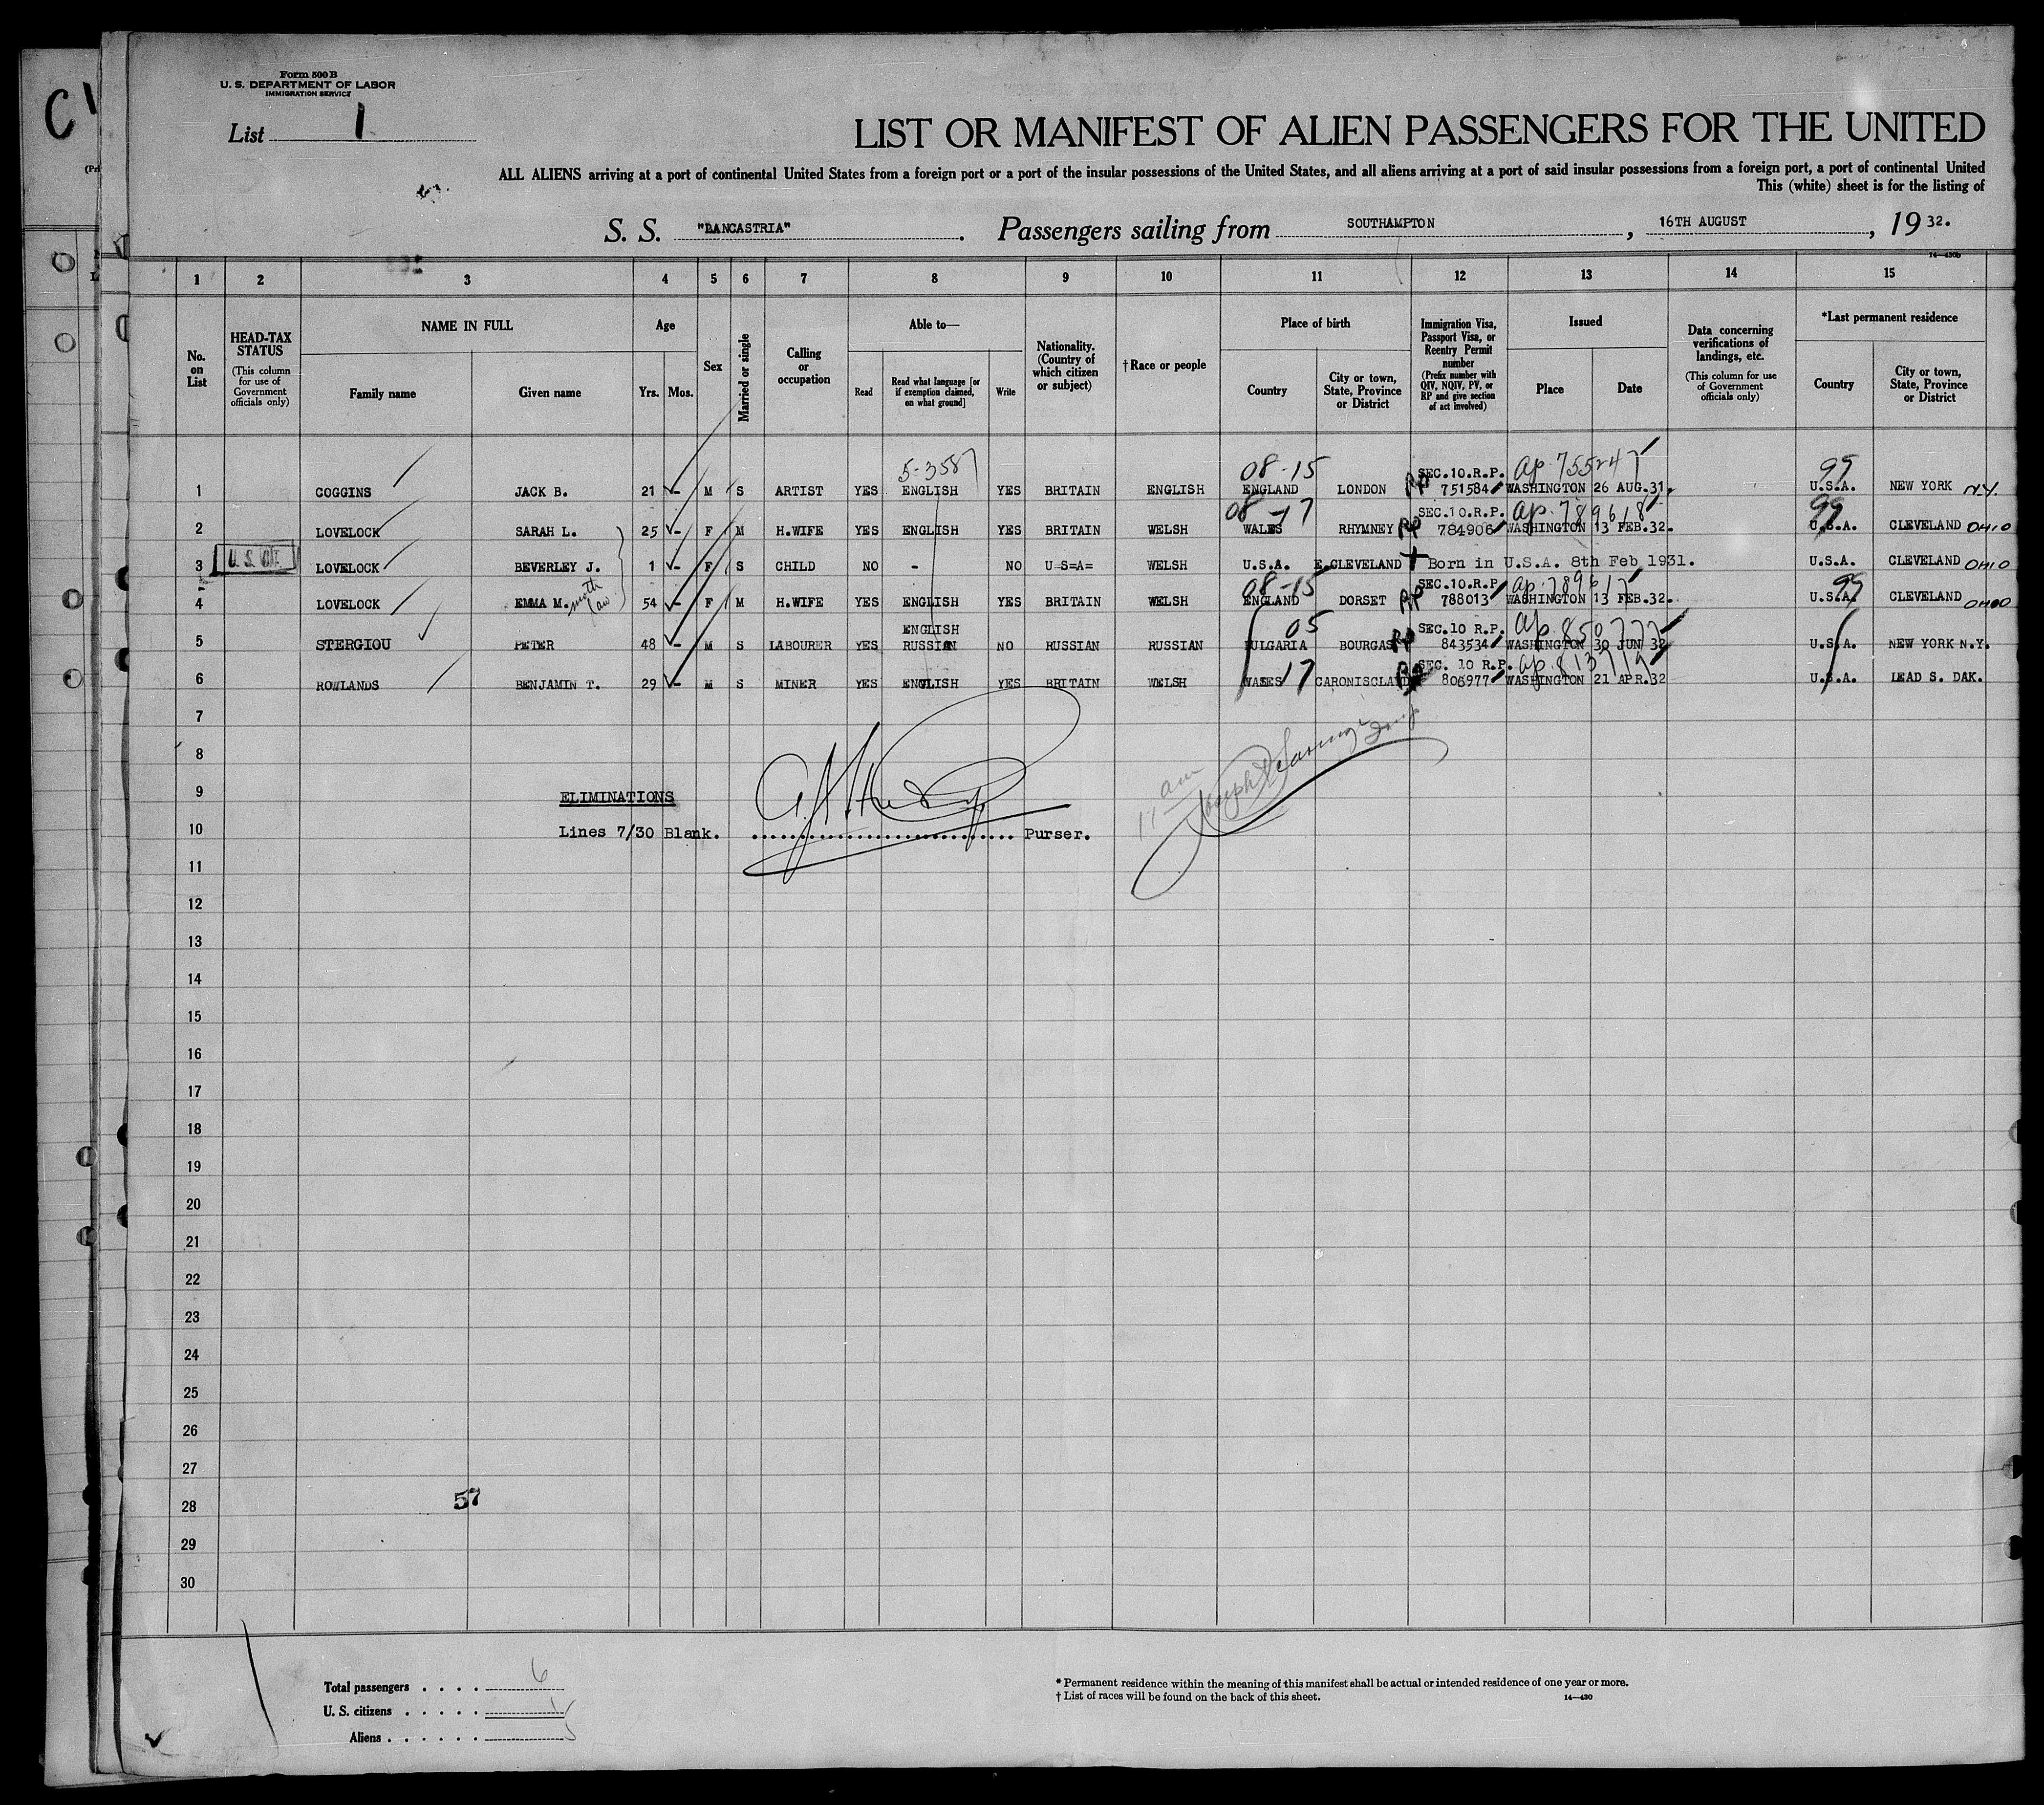 Form 500 B
U. S. DEPARTMENT OF LABOR
IMMIGRATION SERVICE
List 1
LIST OR MANIFEST OF ALIEN PASSENGERS FOR THE UNITED
ALL ALIENS arriving at a port of continental United States from a foreign port or a port of the insular possessions of the United States, and all aliens arriving at a port of said insular possessions from a foreign port, a port of continental United
This (white) sheet is for the listing of
S. S. "LANCASTRIA". Passengers sailing from SOUTHAMPTON, 16TH AUGUST, 19 32.
14—430b
1 2 3 4 5 6 7 8 9 10 11 12 13 14 15
No. on List
HEAD-TAX STATUS (This column for use of Government officials only)
NAME IN FULL
Family name
Given name
Age
Yrs.
Mos.
Sex
Married or single
Calling or occupation
Able to—
Read
Read what language [or if exemption claimed, on what ground]
Write
Nationality. (Country of which citizen or subject)
†Race or people
Place of birth
Country
City or town, State, Province or District
Immigration Visa, Passport Visa, or Reentry Permit number (Prefix number with QIV, NQIV, PV, or RP and give section of act involved)
Issued
Place
Date
Data concerning verifications of landings, etc. (This column for use of Government officials only)
*Last permanent residence
Country
City or town, State, Province or District
5-3587 08-15 SEC.10.R.P. ap. 755247 99
1 COGGINS JACK B. 21 M S ARTIST YES ENGLISH YES BRITAIN ENGLISH ENGLAND LONDON RP 751584 WASHINGTON 26 AUG.31. U.S.A. NEW YORK N.Y.
08-17 SEC.10.R.P. ap. 789618 99
2 LOVELOCK SARAH L. 25 F M H.WIFE YES ENGLISH YES BRITAIN WELSH WALES RHYMNEY RP 784906 WASHINGTON 13 FEB.32. U.S.A. CLEVELAND OHIO
3 U.S. Cit. LOVELOCK BEVERLEY J. 1 F S CHILD NO - NO U-S=A= WELSH U.S.A. E.CLEVELAND Born in U.S.A. 8th Feb 1931. U.S.A. CLEVELAND OHIO
08-15 SEC.10.R.P. ap. 789617 99
4 LOVELOCK EMMA M. moth law 54 F M H.WIFE YES ENGLISH YES BRITAIN WELSH ENGLAND DORSET RP 788013 WASHINGTON 13 FEB.32. U.S.A. CLEVELAND OHIO
ENGLISH 05 SEC.10 R.P. ap. 850777
5 STERGIOU PETER 48 M S LABOURER YES RUSSIAN NO RUSSIAN RUSSIAN BULGARIA BOURGAS RP 843534 WASHINGTON 30 JUN 32 U.S.A. NEW YORK N.Y.
SEC. 10 R.P. ap. 813719
6 ROWLANDS BENJAMIN T. 29 M S MINER YES ENGLISH YES BRITAIN WELSH WALES 17 RP 806977 WASHINGTON 21 APR.32 U.S.A. LEAD S. DAK.
7
8
9
ELIMINATIONS
10 Lines 7/30 Blank. Purser.
11 am
11
12
13
14
15
16
17
18
19
20
21
22
23
24
25
26
27
28
57
29
30
Total passengers . . . . 6
U. S. citizens . . . . . 1
Aliens . . . . . . 5
* Permanent residence within the meaning of this manifest shall be actual or intended residence of one year or more.
† List of races will be found on the back of this sheet.
14—430